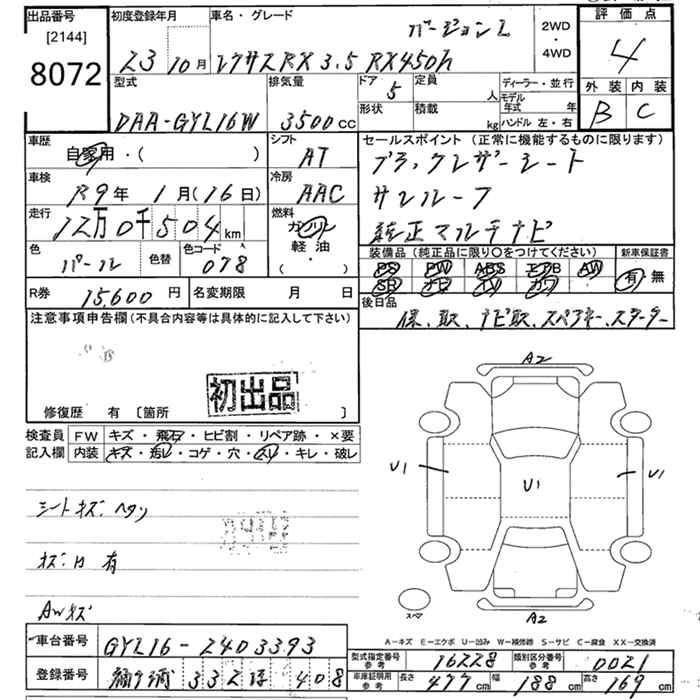 出品番号
[2144]
8072
初度登録年月
23 10月
車名・グレード
バージョンL
レクサスRX 3.5 RX450h
2WD
・
4WD
評価点
4
外装 内装
B C
型式
DAA-GYL16W
排気量
3500cc
ドア 5
形状
定員 人
積載 kg
ディーラー・並行
モデル年式 年
ハンドル 左・右
車歴
自家用・( )
シフト
AT
車検
R9年 1月(16日)
冷房
AAC
走行
12万0千504km
燃料
ガソリン
軽油
( ・ )
色
パール
色替
色コード
078
セールスポイント(正常に機能するものに限ります)
ブラックレザーシート
サンルーフ
純正マルチナビ
装備品(純正品に限り○をつけてください)
新車保証書
PS PW ABS エアB AW
SR ナビ TV カワ
有・無
R券 15,600円
名変期限 月 日
後日品
保、取、ナビ取、スペアキー、スターター
注意事項申告欄(不具合内容等は具体的に記入して下さい)
初出品
修復歴 有 [箇所 ]
検査員記入欄
FW キズ・飛石・ヒビ割・リペア跡・×要
内装 キズ・汚レ・コゲ・穴・スレ・キレ・破レ
シートキズ・ヘタリ
AWキズ
A2
U1
U1
U1
スペア
A2
A-キズ E-エクボ U-凹み W-補修跡 S-サビ C-腐食 XX-交換済
車台番号 GYL16-2403393
登録番号 332 408
型式指定番号 参考 16228
類別区分番号 参考 0021
車庫証明用 参考 長さ 477cm 幅 188cm 高さ 169cm